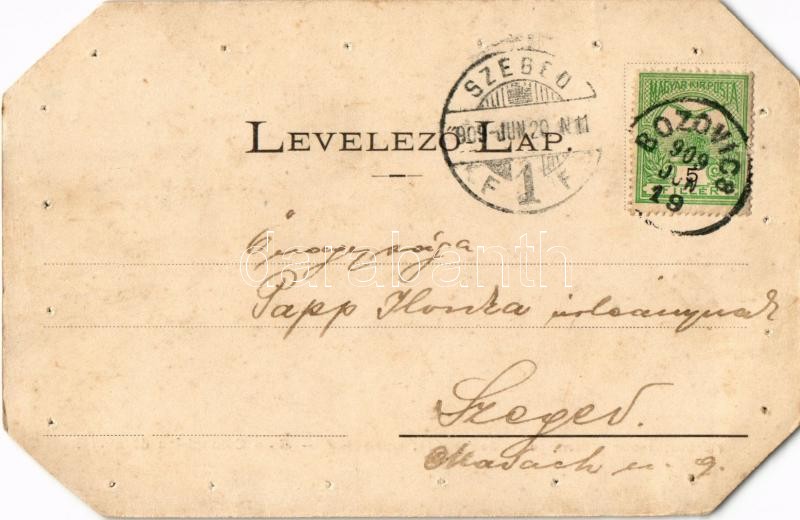 SZEGED
909 JUN 20 N 11
F 1 F
MAGYAR KIR. POSTA
BOZOVICS
909
JUN
19
5
FILLÉR
LEVELEZŐ LAP.
Őnagysága
Papp Ilonka úrleánynak
Szeged.
Madách u. 9.
darabanth